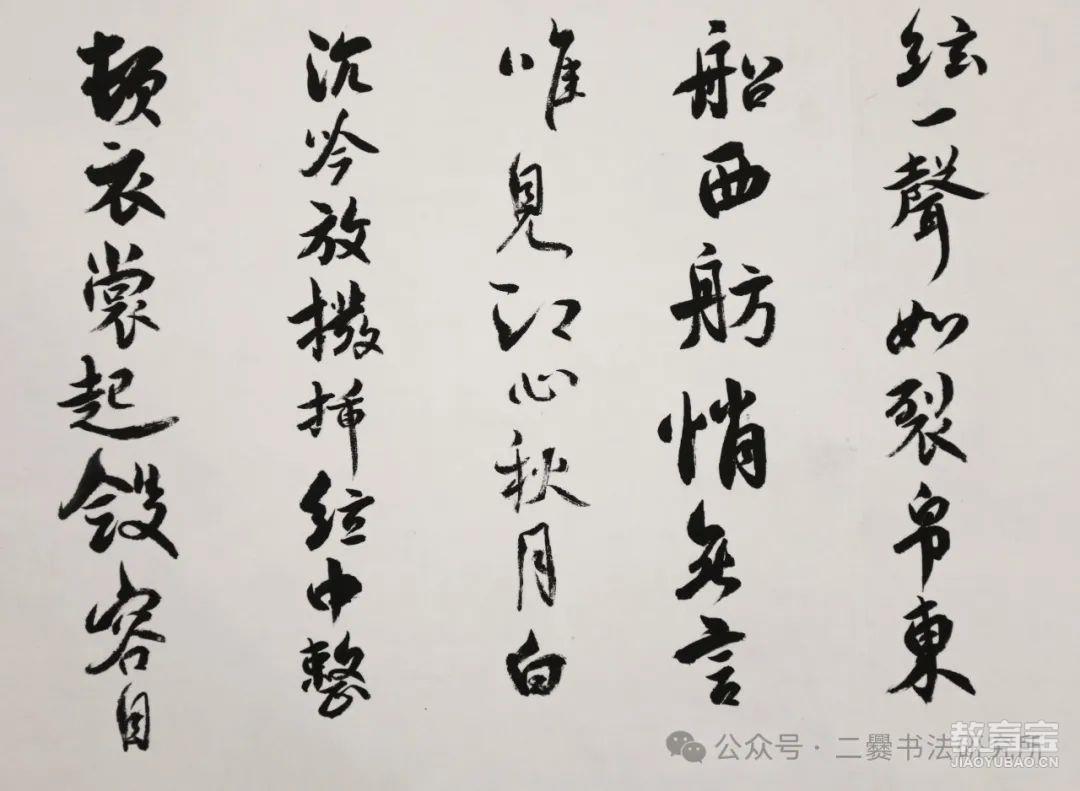 絃一聲如裂帛東
船西舫悄無言
唯見江心秋月白
沉吟放撥插絃中整
頓衣裳起斂容自
公众号·二爨书法研究所
教育宝
JIAOYUBAO.CN